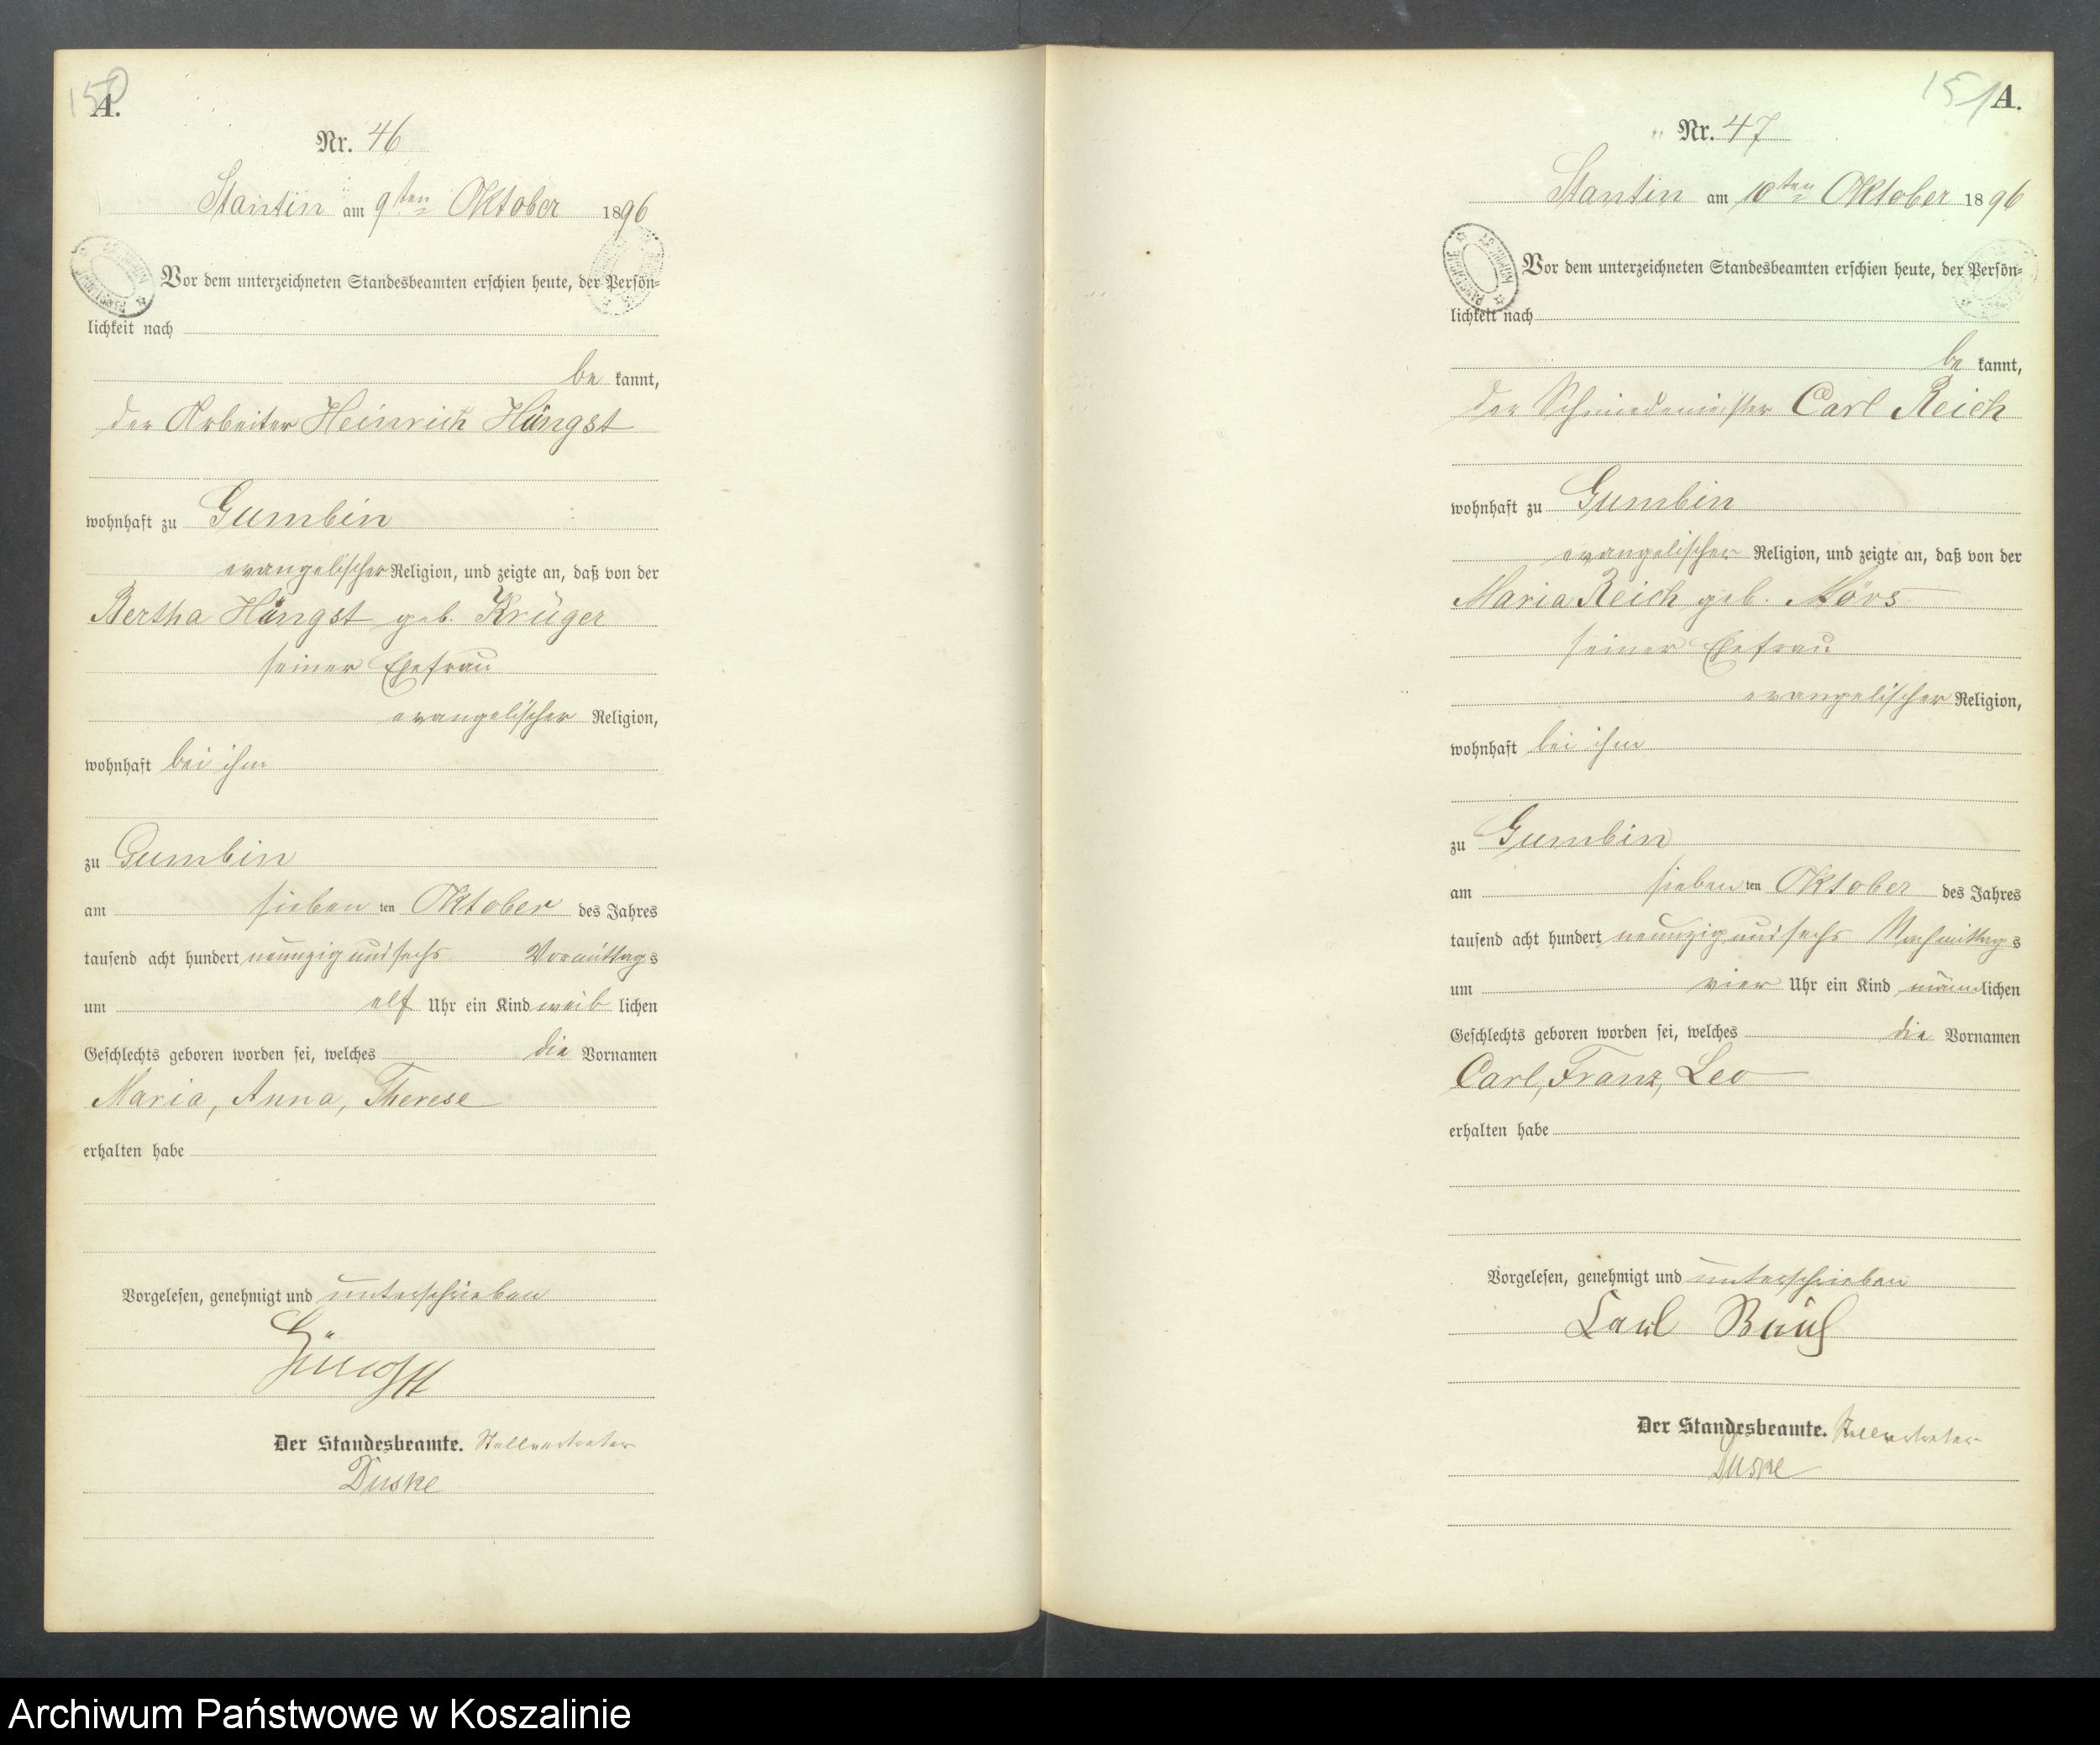 150
A.
Nr. 46
Stantin am 9ten Oktober 1896
Vor dem unterzeichneten Standesbeamten erschien heute, der Persön-
lichkeit nach
be kannt,
der Arbeiter Heinrich Hängst
wohnhaft zu Gumbin
evangelischer Religion, und zeigte an, daß von der
Bertha Hängst geb. Krüger
seiner Ehefrau
evangelischer Religion,
wohnhaft bei ihm
zu Gumbin
am sieben ten Oktober des Jahres
tausend acht hundert neunzig und sechs Vormittags
um elf Uhr ein Kind weib lichen
Geschlechts geboren worden sei, welches die Vornamen
Maria, Anna, Therese
erhalten habe
Vorgelesen, genehmigt und unterschrieben
Hängst
Der Standesbeamte. Stellvertreter
Duske
151
A.
Nr. 47
Stantin am 10ten Oktober 1896
Vor dem unterzeichneten Standesbeamten erschien heute, der Persön-
lichkeit nach
be kannt,
der Schmiedemeister Carl Reich
wohnhaft zu Gumbin
evangelischer Religion, und zeigte an, daß von der
Maria Reich geb. Mörs
seiner Ehefrau
evangelischer Religion,
wohnhaft bei ihm
zu Gumbin
am sieben ten Oktober des Jahres
tausend acht hundert neunzig und sechs Nachmittags
um vier Uhr ein Kind männlichen
Geschlechts geboren worden sei, welches die Vornamen
Carl, Franz, Leo
erhalten habe
Vorgelesen, genehmigt und unterschrieben
Carl Reich
Der Standesbeamte. Stellvertreter
Duske
Archiwum Państwowe w Koszalinie